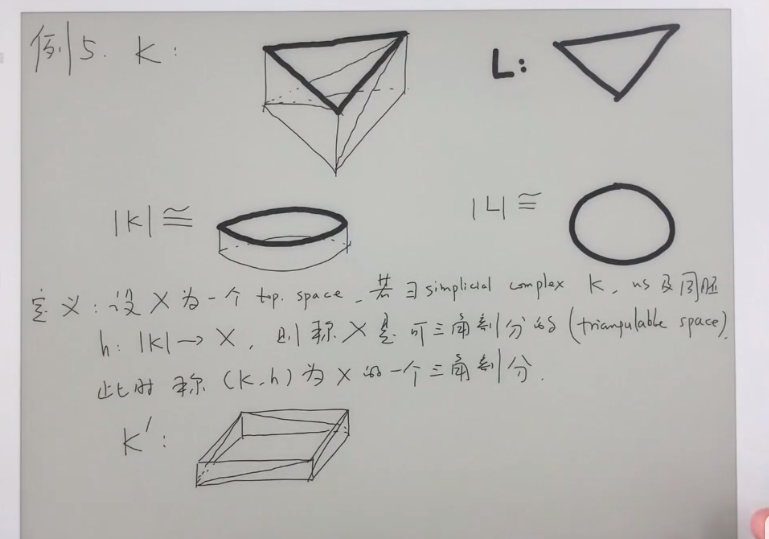 例5. K: L:
|K| ≅ |L| ≅
定义: 设 X 为一个 top. space, 若 ∃ simplicial complex K, 以及同胚
h: |K| → X, 则称 X 是可三角剖分的 (triangulable space).
此时称 (K, h) 为 X 的一个三角剖分.
K′: